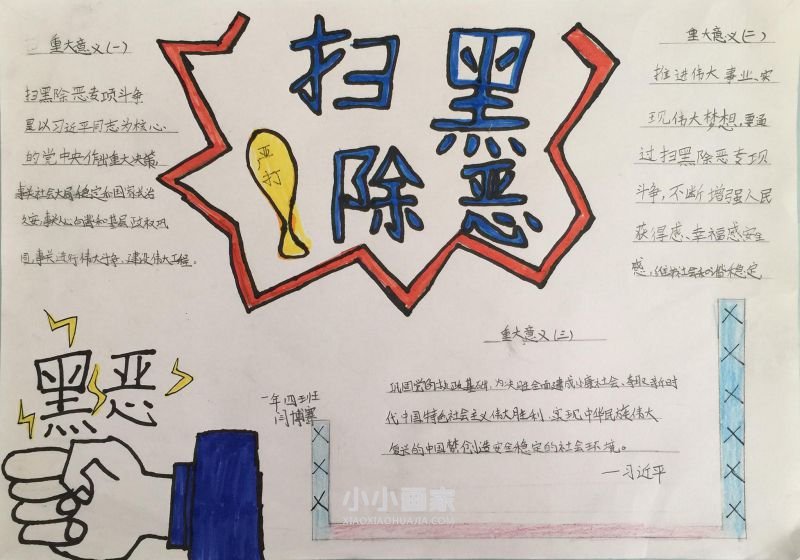 重大意义(一)
扫黑除恶专项斗争
是以习近平同志为核心
的党中央作出重大决策,
事关社会大局稳定和国家长治
久安,事关人心向背和基层政权巩
固,事关进行伟大斗争、建设伟大工程。
扫黑
除恶
严打
重大意义(二)
推进伟大事业、实
现伟大梦想,要通
过扫黑除恶专项
斗争,不断增强人民
获得感、幸福感安全
感,维护社会和谐稳定
黑恶
一年四班
闫博
重大意义(三)
巩固党的执政基础,为决胜全面建成小康社会、夺取新时
代中国特色社会主义伟大胜利、实现中华民族伟大
复兴的中国梦创造安全稳定的社会环境。
—习近平
小小画家
XIAOXIAOHUAJIA.COM